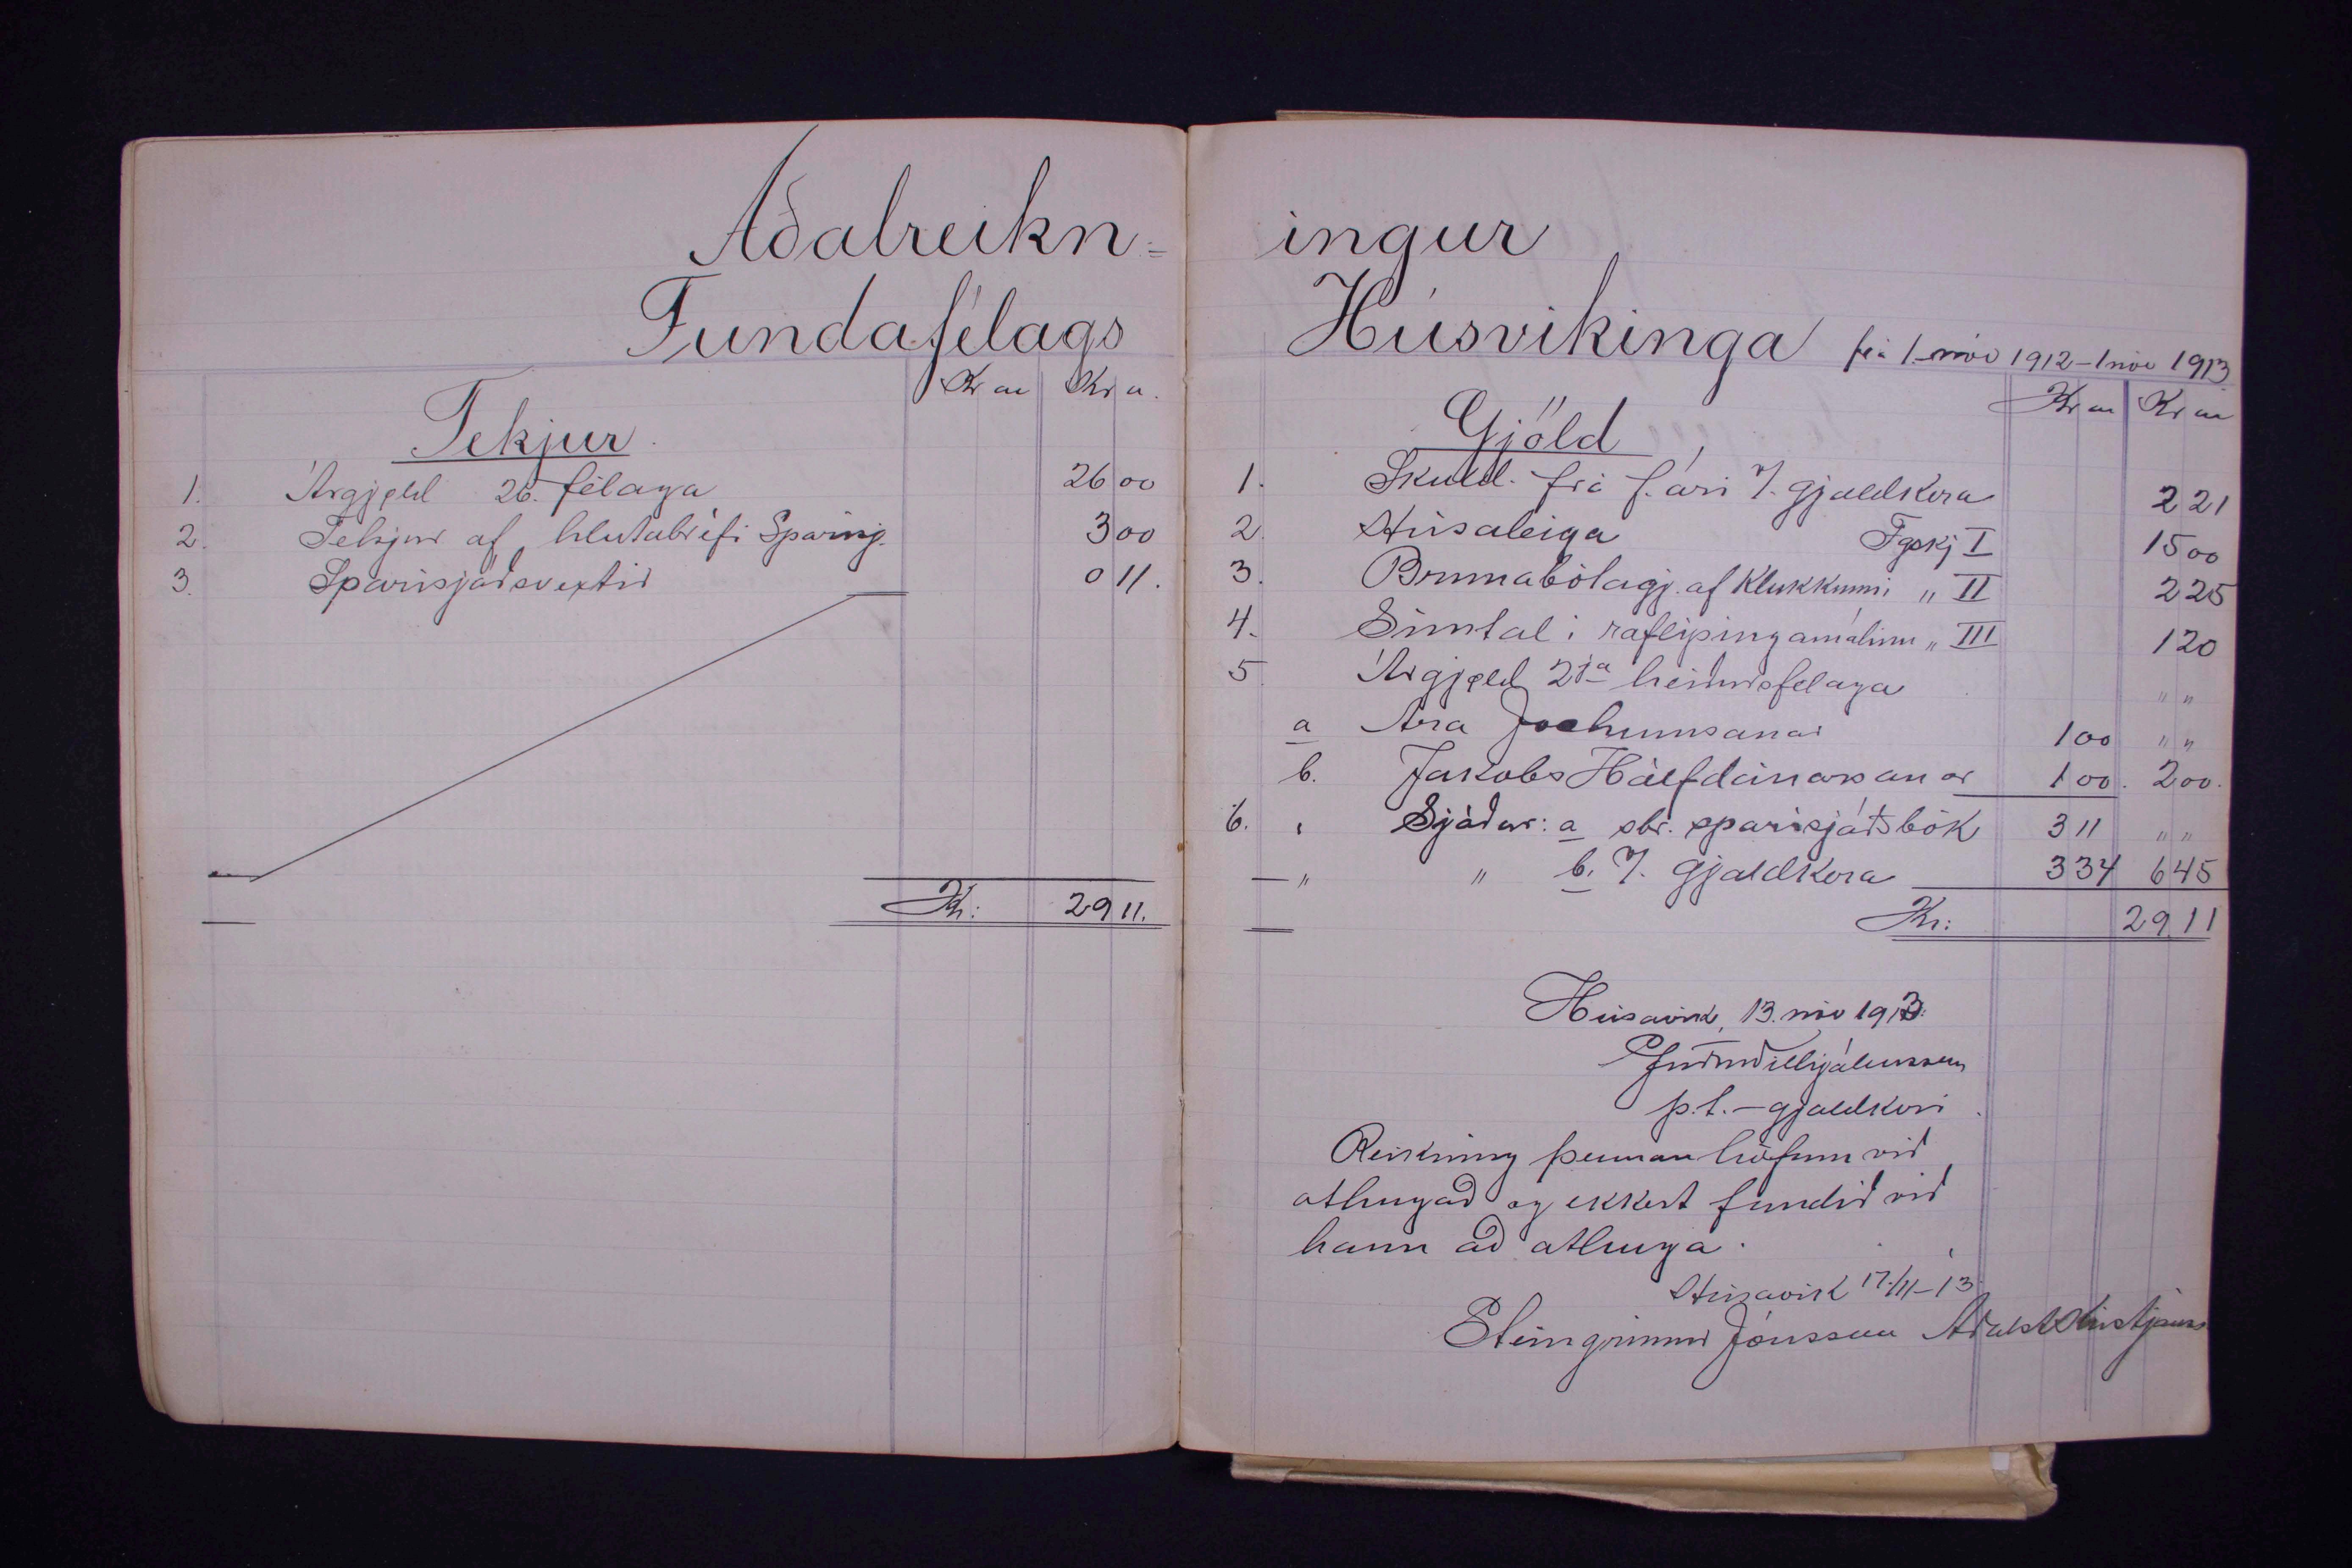 Aðalreikn=ingur
Fundafélags Húsvíkinga frá 1. nóv 1912 - 1 nóv 1913
Kr au Kr a.
Tekjur
1. Árgjöld 26. félaga 26 00
2. Tekjur af hlutabréfi Sparisj. 3 00
3. Sparisjóðsvextir 0 11.
Kr: 29 11.
Kr au Kr au
Gjöld
1. Skuld frá f. ári /. gjaldkera 2 21
2. Húsaleiga Fgskj I 15 00
3. Brunabótagj. af Klukkunni " II 2 25
4. Símtal í raflýsingamálinu " III 1 20
5 Árgjöld 2ja heiðursfélaga " "
a Ara Jochumsonar 1 00 " "
b. Jakobs Hálfdánarsonar 1 00. 2 00.
6. Sjóður: a sbr. sparisjóðsbók 3 11 " "
" " b. /. gjaldkera 3 34 6 45
Kr: 29 11
Húsavík, 13. nóv 1913.
Vilhjálmsson
p.t. - gjaldkeri
Reikning þennan höfum við
athugað og ekkert fundið við
hann að athuga.
Húsavík 17/11-13
Steingrímur Jónsson Aðalst Kristjáns